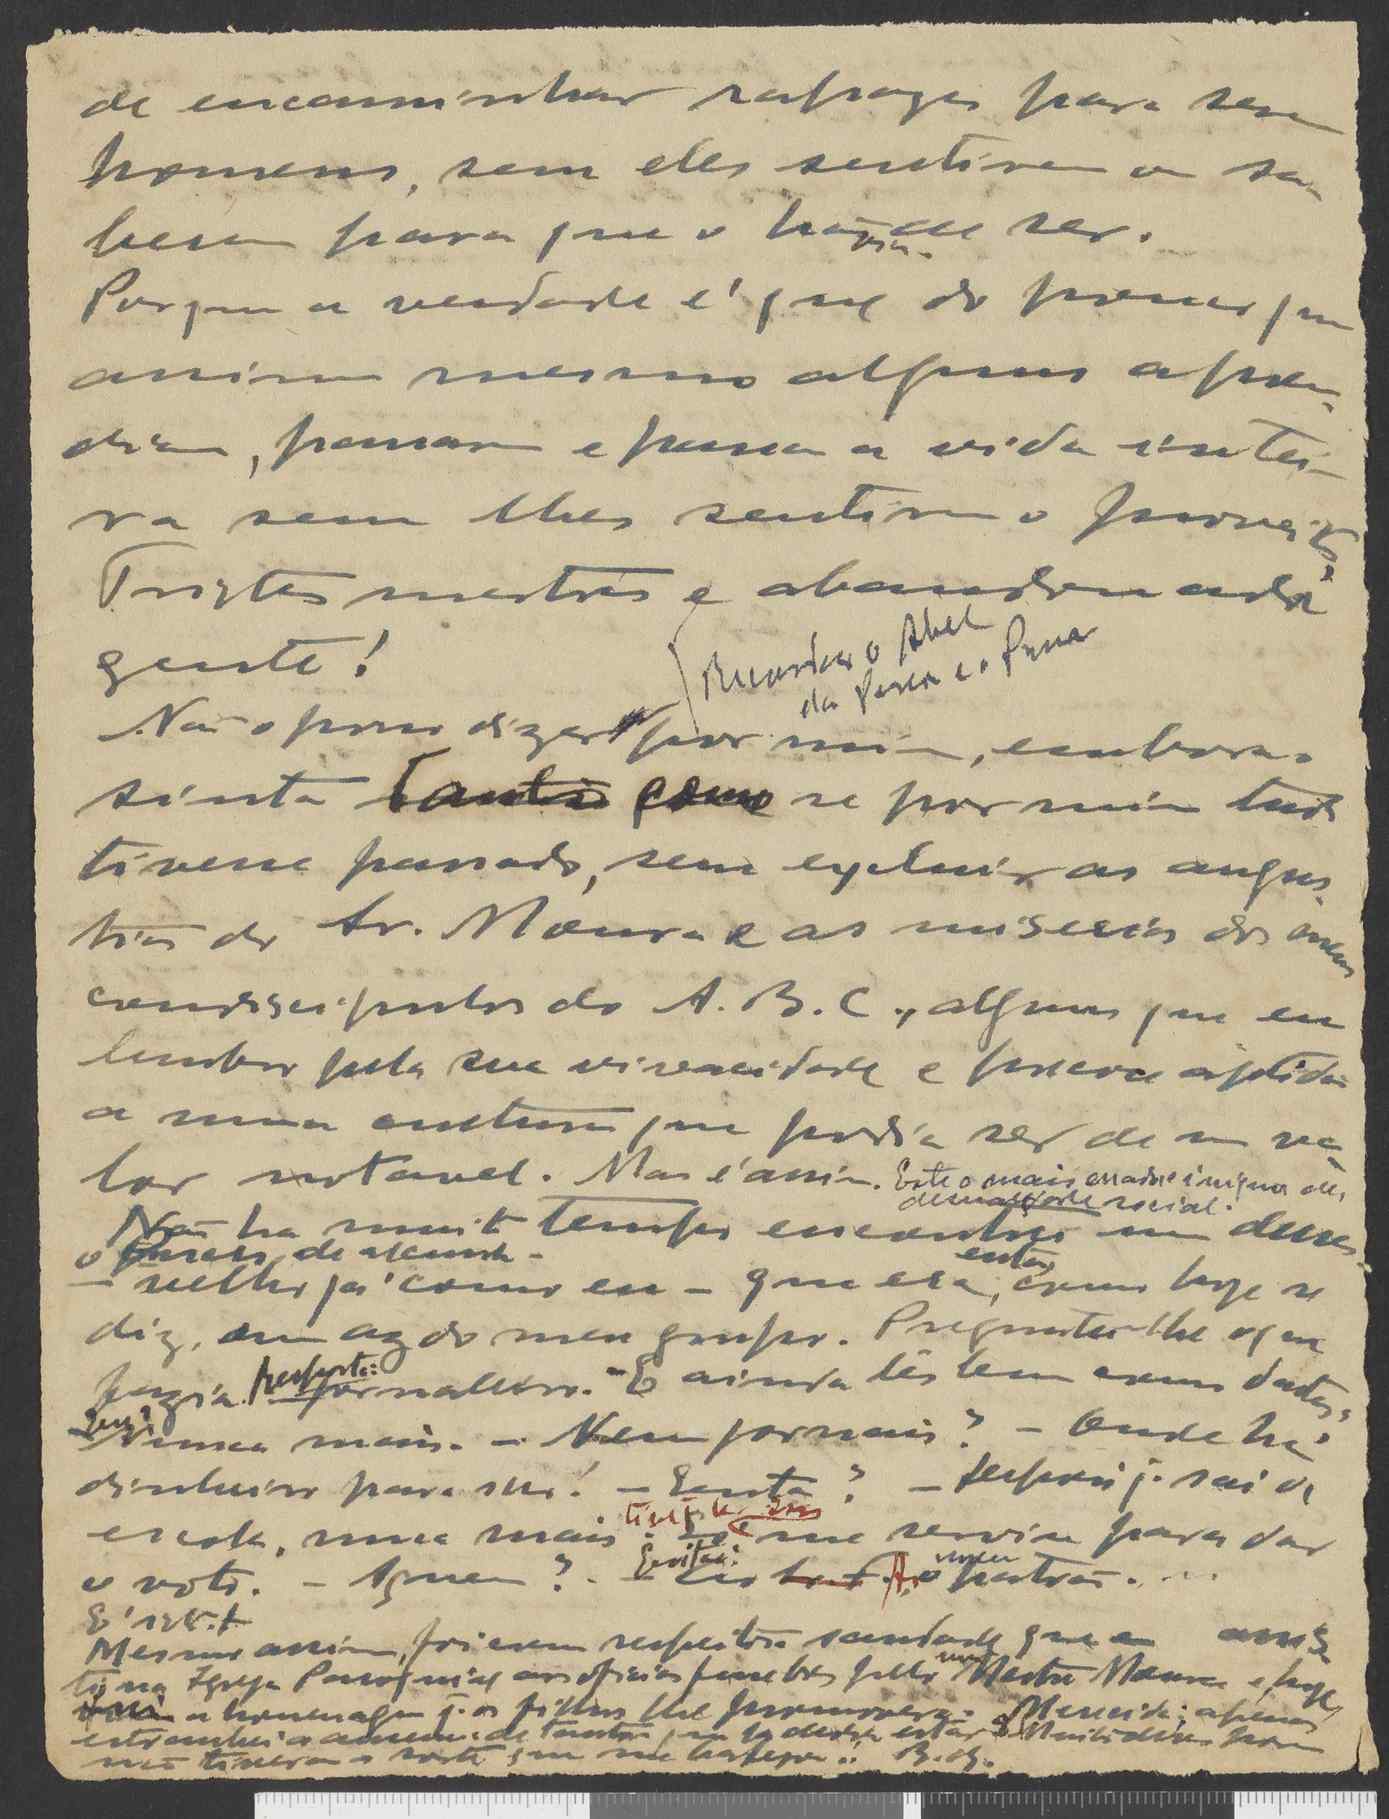 de encaminhar rapazes para serem
homens, sem eles sentirem ou sa-
berem para que o hão de ser.
Porque a verdade é que do pouco que
assim mesmo alguns apren-
diam, passaram e passam a vida intei-
ra sem lhes sentirem o proveito.
Tristes mestres e abandonada
gente!
Recordar o Abel
da
Não o posso dizer por mim, embora o
sinta tanto como se por mim tudo
tivesse passado, sem excluir as angus-
tias do Sr. Moura e as miserias dos meus
condiscipulos do A. B. C., alguns que eu
lembro pela sua vivacidade e aptidão
a uma cultura que podia ser de um va-
lor notavel. Mas é assim. Este o mais
social.
Não ha muito tempo encontrei um desses
o
- velho já como eu - que era, então, como hoje se
diz, um az do meu grupo. Preguntei-lhe o que
fazia. resposta: jornaleiro. - E ainda lês bem como dantes?
- Nunca mais. - Nem jornais? - Onde ha
dinheiro para isso! - Escrita? - depois q. sai da
escola, nunca mais. me serviu para dar
o voto. - A quem? - Ao meu patrão. ...
E'
Mesmo assim, foi com respeitosa saudade que eu assis-
ti na Igreja Paroquial aos oficios funebres pelo meu Mestre Moura e hoje
a homenagem q. os filhos lhe promovera. Merecida; apenas
estranhei a ausencia de tantos que la devia estar.
não tiveram a sorte que me